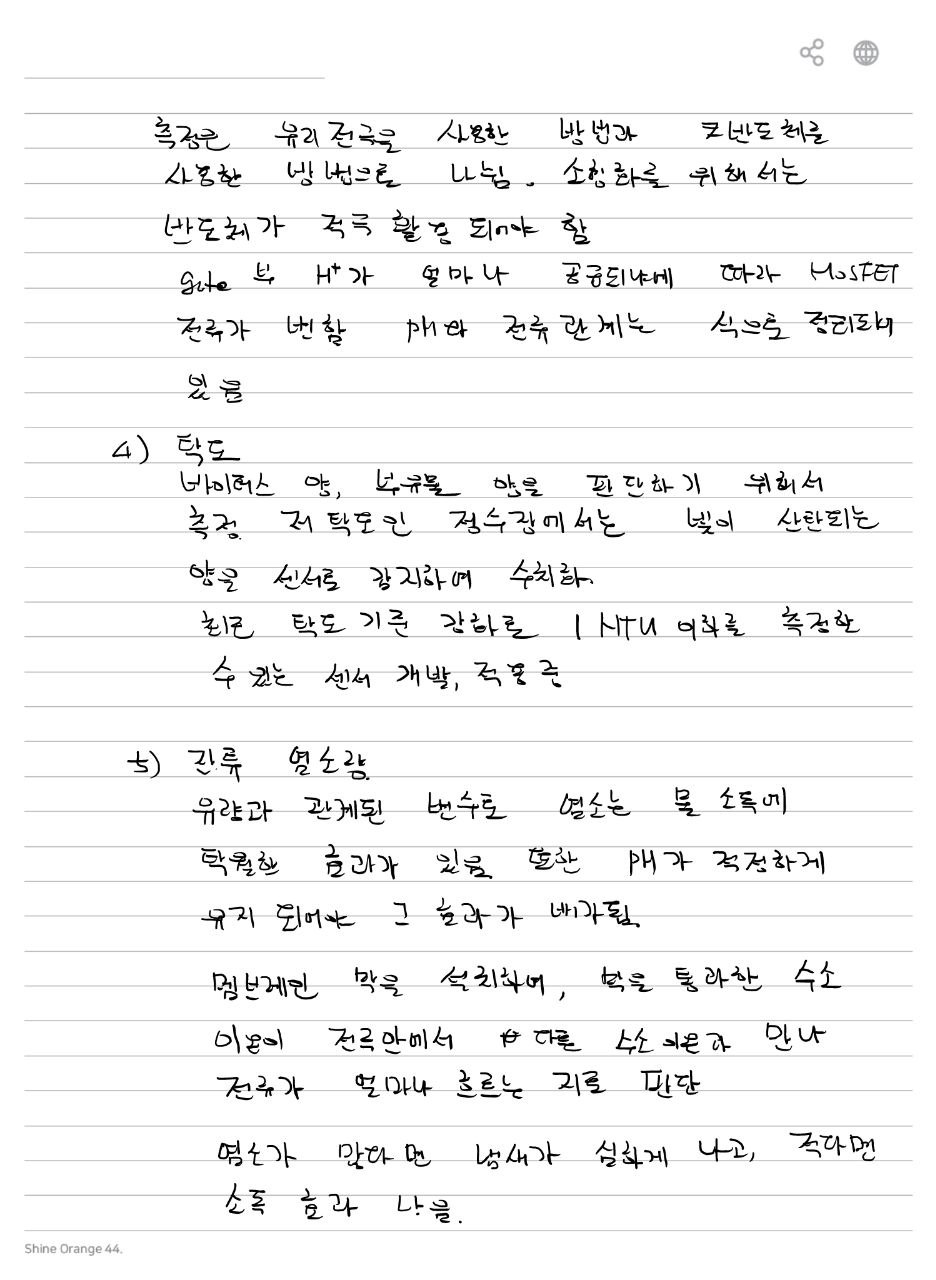 측정은 유리전극을 사용한 방법과 반도체를
사용한 방법으로 나뉨. 소형화를 위해서는
반도체가 적극 활용되어야 함
gate 부 H+가 얼마나 공급되냐에 따라 MOSFET
전류가 변함 pH와 전류관계는 식으로 정리되어
있음
4) 탁도
바이러스 양, 부유물 양을 판단하기 위해서
측정. 저 탁도인 정수장에서는 빛이 산란되는
양을 센서로 감지하여 수치화.
최근 탁도 기준 강화로 1 NTU 이하를 측정할
수 있는 센서 개발, 적용중
5) 잔류 염소량.
유량과 관계된 변수로 염소는 물 소독에
탁월한 효과가 있음. 또한 pH가 적정하게
유지 되어야 그 효과가 배가됨.
멤브레인 막을 설치하여, 막을 통과한 수소
이온이 전극안에서 다른 수소이온과 만나
전류가 얼마나 흐르는 지로 판단
염소가 많다면 냄새가 심하게 나고, 적다면
소독 효과 낮음.
Shine Orange 44.